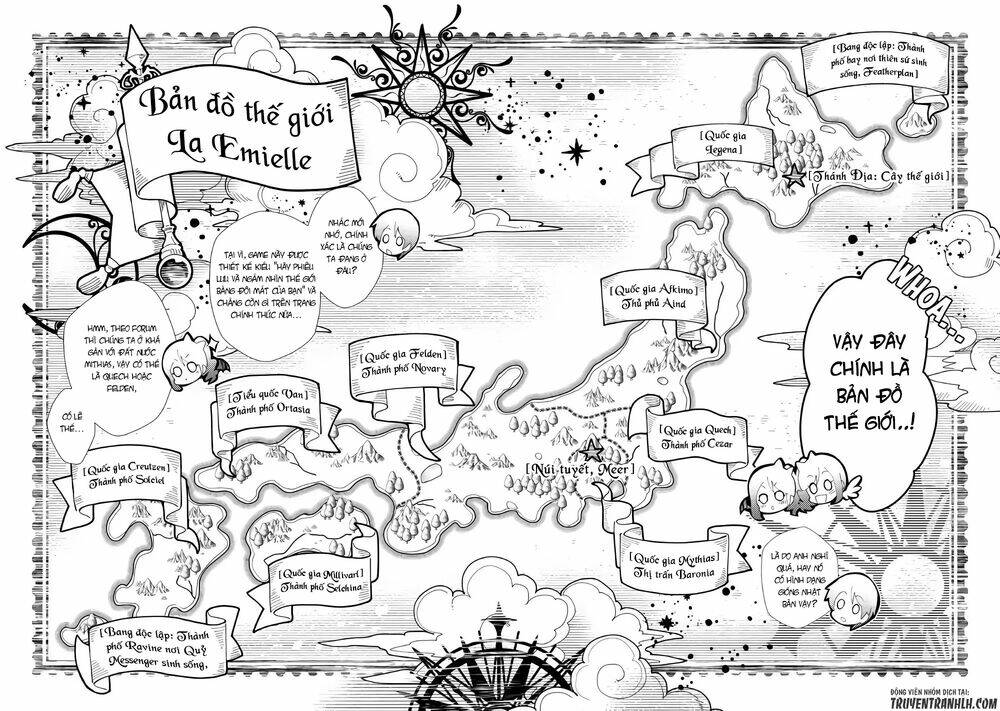 Bản đồ thế giới
La Emielle
[Bang độc lập: Thành
phố bay nơi thiên sứ sinh
sống, Featherplan]
[Quốc gia
Legena]
[Thánh Địa: Cây thế giới]
WHOA...
VẬY ĐÂY
CHÍNH LÀ
BẢN ĐỒ
THẾ GIỚI..!
LÀ DO ANH NGHĨ
QUÁ, HAY NÓ
CÓ HÌNH DẠNG
GIỐNG NHẬT
BẢN VẬY?
NHẮC MỚI
NHỚ, CHÍNH
XÁC LÀ CHÚNG
TA ĐANG Ở
ĐÂU?
TẠI VÌ, GAME NÀY ĐƯỢC
THIẾT KẾ KIỂU "HÃY PHIÊU
LƯU VÀ NGẮM NHÌN THẾ GIỚI
BẰNG ĐÔI MẮT CỦA BẠN" VÀ
CHẲNG CÒN GÌ TRÊN TRANG
CHÍNH THỨC NỮA...
HMM, THEO FORUM
THÌ CHÚNG TA Ở KHÁ
GẦN VỚI ĐẤT NƯỚC
MITHIAS, VẬY CÓ THỂ
LÀ QUECH HOẶC
FELDEN,
CÓ LẼ
THẾ...
[Quốc gia Afkimo]
Thủ phủ Aind
[Quốc gia Felden]
Thành phố Novary
[Tiểu quốc Van]
Thành phố Ortasia
[Quốc gia Quech]
Thành phố Cezar
[Núi tuyết, Meer]
[Quốc gia Creutzen]
Thành phố Solciel
[Quốc gia Mythias]
Thị trấn Baronia
[Quốc gia Millivart]
Thành phố Selchina
[Bang độc lập: Thành
phố Ravine nơi Quỷ
Messenger sinh sống,
ĐỘNG VIÊN NHÓM DỊCH TẠI:
TRUYENTRANHLH.COM